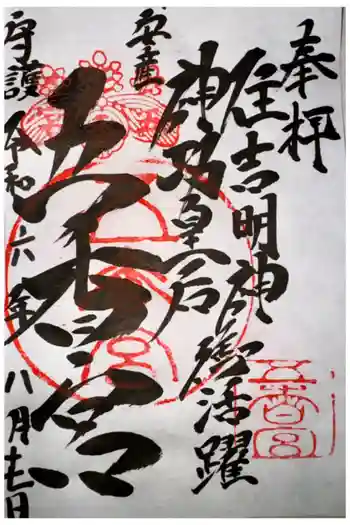 奉拝
住吉明神御活躍
神功皇后
安産
五香宮
守護 令和六年八月十一日
五香宮